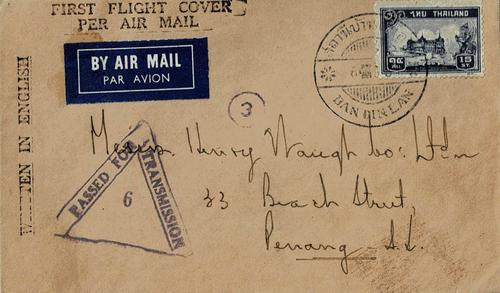 FIRST FLIGHT COVER
PER AIR MAIL
BY AIR MAIL
PAR AVION
WRITTEN IN ENGLISH
ไทย THAILAND
15
BAN DIN LAN
3
PASSED FOR TRANSMISSION
6
Messrs. Henry Waugh & Co. Ltd
33 Beach Street,
Penang